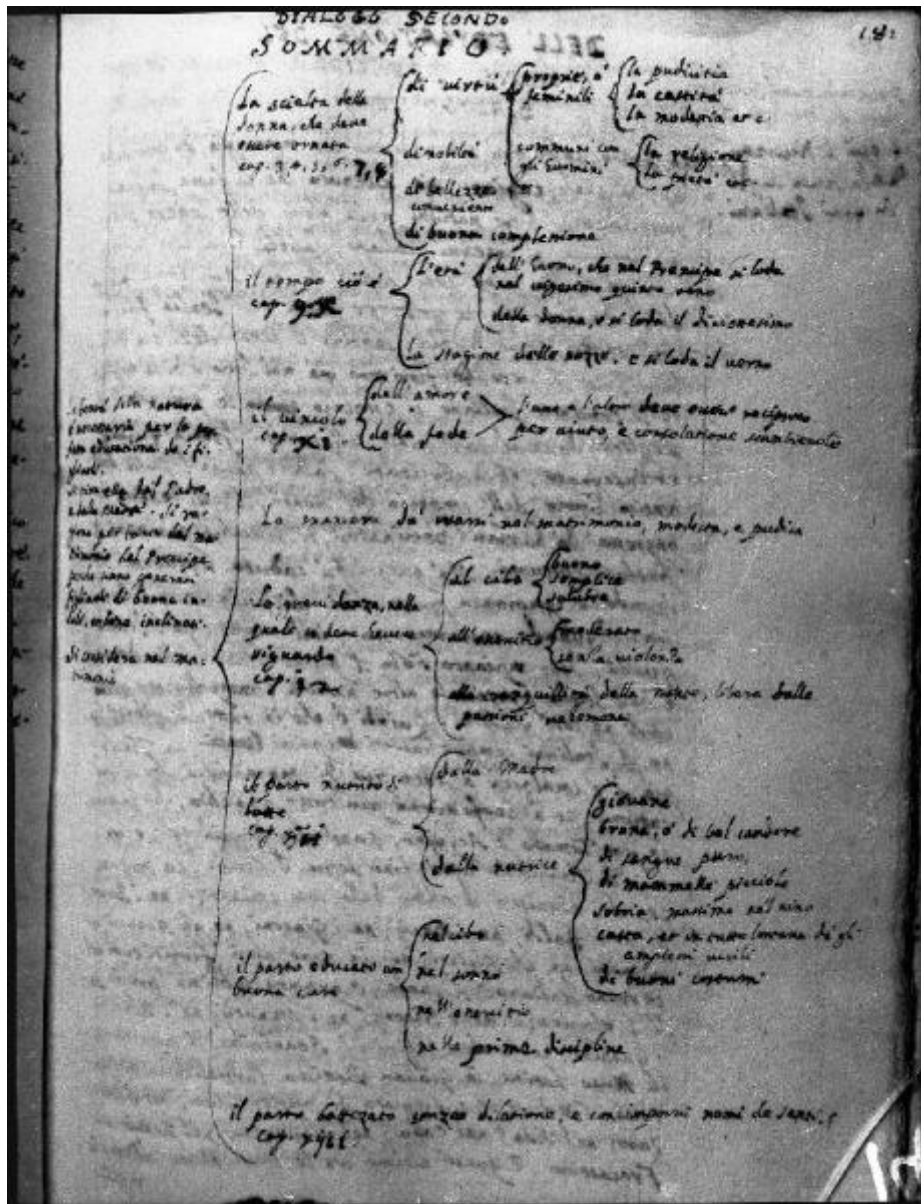 DIALOGO SECONDO
SOMMARIO
La scielta della
donna, che deve
essere ornata
cap. 3, 4, 5, 6, 7, 8
di virtù
proprie, ò
feminili
la pudicitia
la castità
la modestia etc
communi con
gli huomini
la religione
la
di nobiltà
di bellezza
di buona complessione
il tempo cioè
cap. 9
l'età
dell' huomo, che nel Principe si loda
nel vigesimo quinto anno
della donna, e si loda il
La stagione delle nozze, e si loda il verno
il vincolo
cap.
dell' amore
della fede
l'uno, e l'altro deve essere reciproco
per aiuto, e consolatione
La maniera da usarsi nel matrimonio, modesta, e pudica
La gravidanza, nella
quale si deve havere
riguardo
cap.
al cibo
buono
semplice
salubre
all' esercitio
moderato
senza violenza
alla tranquillità della mente, libera dalle
passioni
il parto nutrito di
latte
cap.
dalla Madre
dalla nutrice
giovane
bruna, ò di bel candore
di sangue puro,
di mammelle picciole
sobria, massime nel vino
casta, et in tutto lontana da gli
amplessi virili
di buoni costumi
il parto educato con
buona cura
nel cibo
nel sonno
nell' esercitio
nelle prime discipline
il parto battezato senza dilatione, e nomi de santi
cap.
della natura
necessaria per la
educatione de i fi-
gliuoli
del Padre,
del ma-
trimonio del Principe
di buona in-
dole,
si considera nel ma-